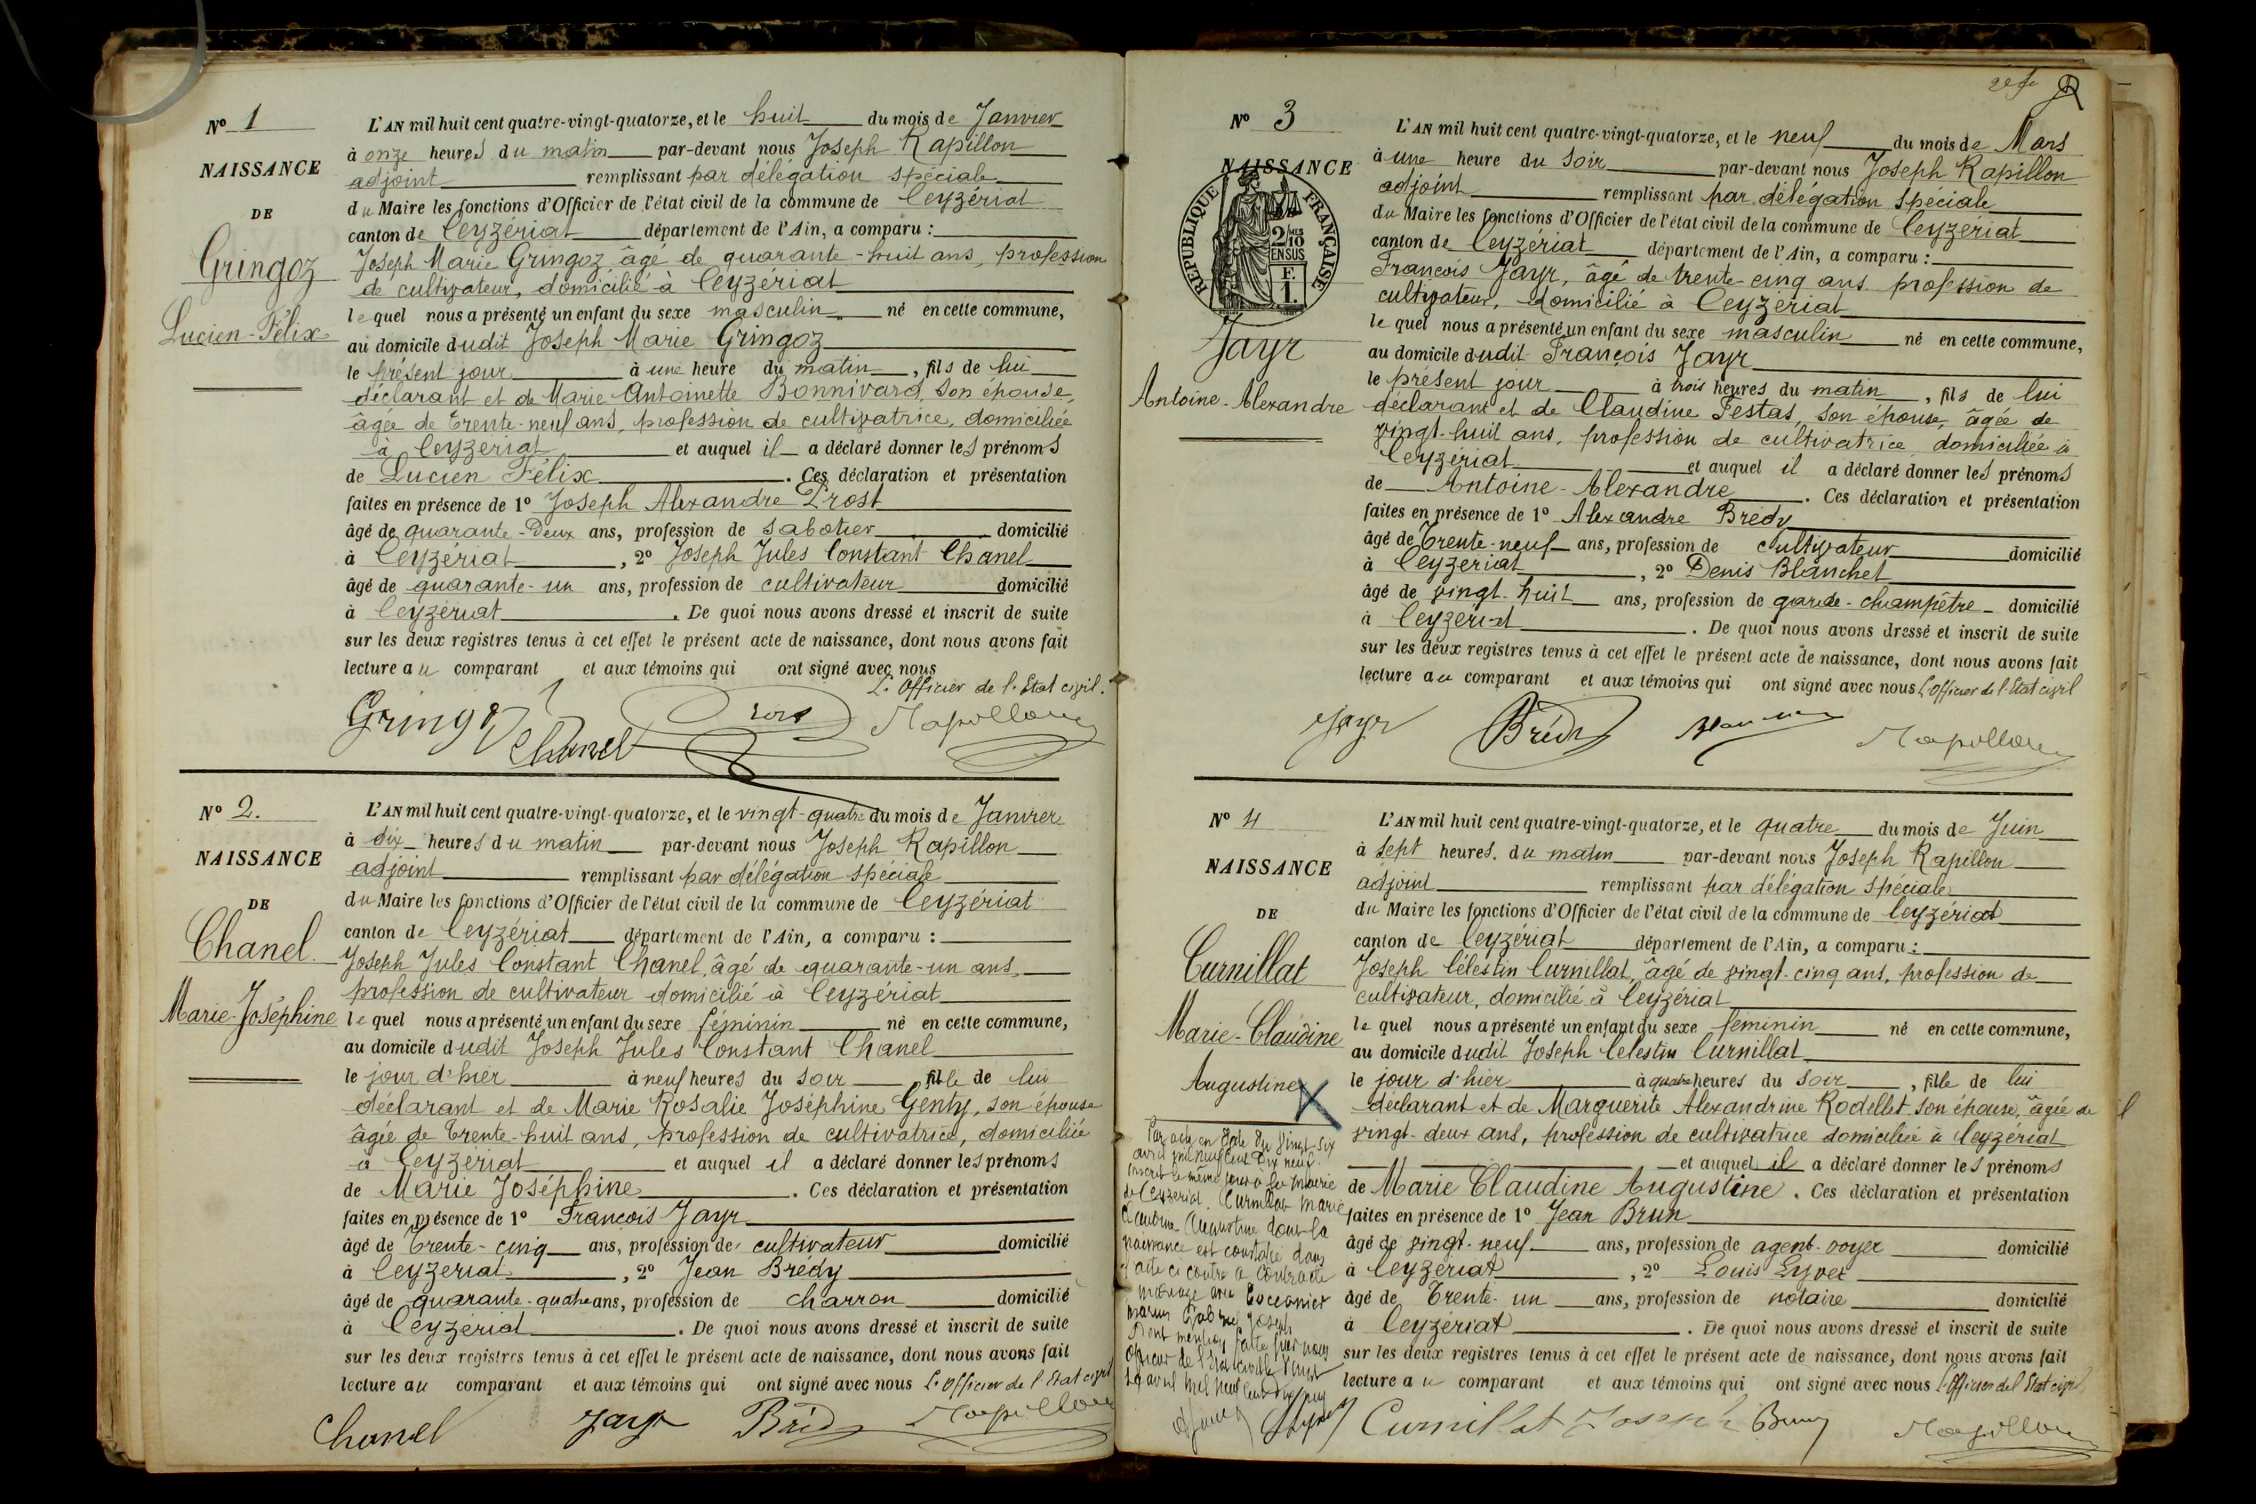 Nº 1
NAISSANCE
DE
Gringoz
Lucien-Félix
L'AN mil huit cent quatre-vingt-quatorze, et le huit du mois de Janvier
à onze heures du matin par-devant nous Joseph Rapillon
adjoint remplissant par délégation spéciale
du Maire les fonctions d'Officier de l'état civil de la commune de Ceyzériat
canton de Ceyzériat département de l'Ain, a comparu :
Joseph Marie Gringoz âgé de quarante-huit ans, profession
de cultivateur, domicilié à Ceyzériat
lequel nous a présenté un enfant du sexe masculin né en cette commune,
au domicile dudit Joseph Marie Gringoz
le présent jour à une heure du matin, fils de lui
déclarant et de Marie Antoinette Bonnivard, son épouse,
âgée de trente-neuf ans, profession de cultivatrice, domiciliée
à Ceyzériat et auquel il a déclaré donner les prénoms
de Lucien Félix. Ces déclaration et présentation
faites en présence de 1º Joseph Alexandre Prost
âgé de quarante-deux ans, profession de sabotier domicilié
à Ceyzériat, 2º Joseph Jules Constant Chanel
âgé de quarante-un ans, profession de cultivateur domicilié
à Ceyzériat. De quoi nous avons dressé et inscrit de suite
sur les deux registres tenus à cet effet le présent acte de naissance, dont nous avons fait
lecture au comparant et aux témoins qui ont signé avec nous
L'Officier de l'Etat civil.
Gringoz Chanel Prost Rapillon
Nº 2.
NAISSANCE
DE
Chanel
Marie-Joséphine
L'AN mil huit cent quatre-vingt-quatorze, et le vingt-quatre du mois de Janvier
à dix heures du matin par-devant nous Joseph Rapillon
adjoint remplissant par délégation spéciale
du Maire les fonctions d'Officier de l'état civil de la commune de Ceyzériat
canton de Ceyzériat département de l'Ain, a comparu :
Joseph Jules Constant Chanel, âgé de quarante-un ans,
profession de cultivateur domicilié à Ceyzériat
lequel nous a présenté un enfant du sexe féminin né en cette commune,
au domicile dudit Joseph Jules Constant Chanel
le jour d'hier à neuf heures du soir fille de lui
déclarant et de Marie Rosalie Joséphine Genty, son épouse
âgée de trente-huit ans, profession de cultivatrice, domiciliée
à Ceyzériat et auquel il a déclaré donner les prénoms
de Marie Joséphine. Ces déclaration et présentation
faites en présence de 1º François Jayr
âgé de trente-cinq ans, profession de cultivateur domicilié
à Ceyzériat, 2º Jean Brédy
âgé de quarante-quatre ans, profession de charron domicilié
à Ceyzériat. De quoi nous avons dressé et inscrit de suite
sur les deux registres tenus à cet effet le présent acte de naissance, dont nous avons fait
lecture au comparant et aux témoins qui ont signé avec nous L'Officier de l'Etat civil
Chanel Jayr Brédy Rapillon
Nº 3
NAISSANCE
REPUBLIQUE FRANÇAISE
2/10 EN SUS
F. 1.
Jayr
Antoine-Alexandre
L'AN mil huit cent quatre-vingt-quatorze, et le neuf du mois de Mars
à une heure du soir par-devant nous Joseph Rapillon
adjoint remplissant par délégation spéciale
du Maire les fonctions d'Officier de l'état civil de la commune de Ceyzériat
canton de Ceyzériat département de l'Ain, a comparu :
François Jayr, âgé de trente-cinq ans profession de
cultivateur, domicilié à Ceyzériat
lequel nous a présenté un enfant du sexe masculin né en cette commune,
au domicile dudit François Jayr
le présent jour à trois heures du matin, fils de lui
déclarant et de Claudine Festas, son épouse, âgée de
vingt-huit ans, profession de cultivatrice domiciliée à
Ceyzériat et auquel il a déclaré donner les prénoms
de Antoine-Alexandre. Ces déclaration et présentation
faites en présence de 1º Alexandre Brédy
âgé de trente-neuf ans, profession de cultivateur domicilié
à Ceyzériat, 2º Denis Blanchet
âgé de vingt-huit ans, profession de garde-champêtre domicilié
à Ceyzériat. De quoi nous avons dressé et inscrit de suite
sur les deux registres tenus à cet effet le présent acte de naissance, dont nous avons fait
lecture au comparant et aux témoins qui ont signé avec nous L'Officier de l'Etat civil
Jayr Brédy Rapillon
Nº 4
NAISSANCE
DE
Curnillat
Marie-Claudine
Augustine
L'AN mil huit cent quatre-vingt-quatorze, et le quatre du mois de Juin
à sept heures du matin par-devant nous Joseph Rapillon
adjoint remplissant par délégation spéciale
du Maire les fonctions d'Officier de l'état civil de la commune de Ceyzériat
canton de Ceyzériat département de l'Ain, a comparu :
Joseph Célestin Curnillat, âgé de vingt-cinq ans, profession de
cultivateur, domicilié à Ceyzériat
lequel nous a présenté un enfant du sexe féminin né en cette commune,
au domicile dudit Joseph Célestin Curnillat
le jour d'hier à quatre heures du soir, fille de lui
déclarant et de Marguerite Alexandrine Rodellet son épouse, âgée de
vingt-deux ans, profession de cultivatrice domiciliée à Ceyzériat
et auquel il a déclaré donner les prénoms
de Marie Claudine Augustine. Ces déclaration et présentation
faites en présence de 1º Jean Brun
âgé de vingt-neuf ans, profession de agent-voyer domicilié
à Ceyzériat, 2º Louis Eyvet
âgé de trente-un ans, profession de notaire domicilié
à Ceyzériat. De quoi nous avons dressé et inscrit de suite
sur les deux registres tenus à cet effet le présent acte de naissance, dont nous avons fait
lecture au comparant et aux témoins qui ont signé avec nous L'Officier de l'Etat civil
Par acte en date du vingt-six
avril mil neuf cent dix neuf
inscrit le même jour à la mairie
de Ceyzériat. Curnillat Marie
Claudine Augustine dont la
naissance est constatée dans
l'acte ci contre a contracté
mariage avec
Gabriel Joseph
Dont mention faite par nous
officier de l'état civil le vingt
six avril mil neuf cent dix neuf
Curnillat Joseph Brun Rapillon